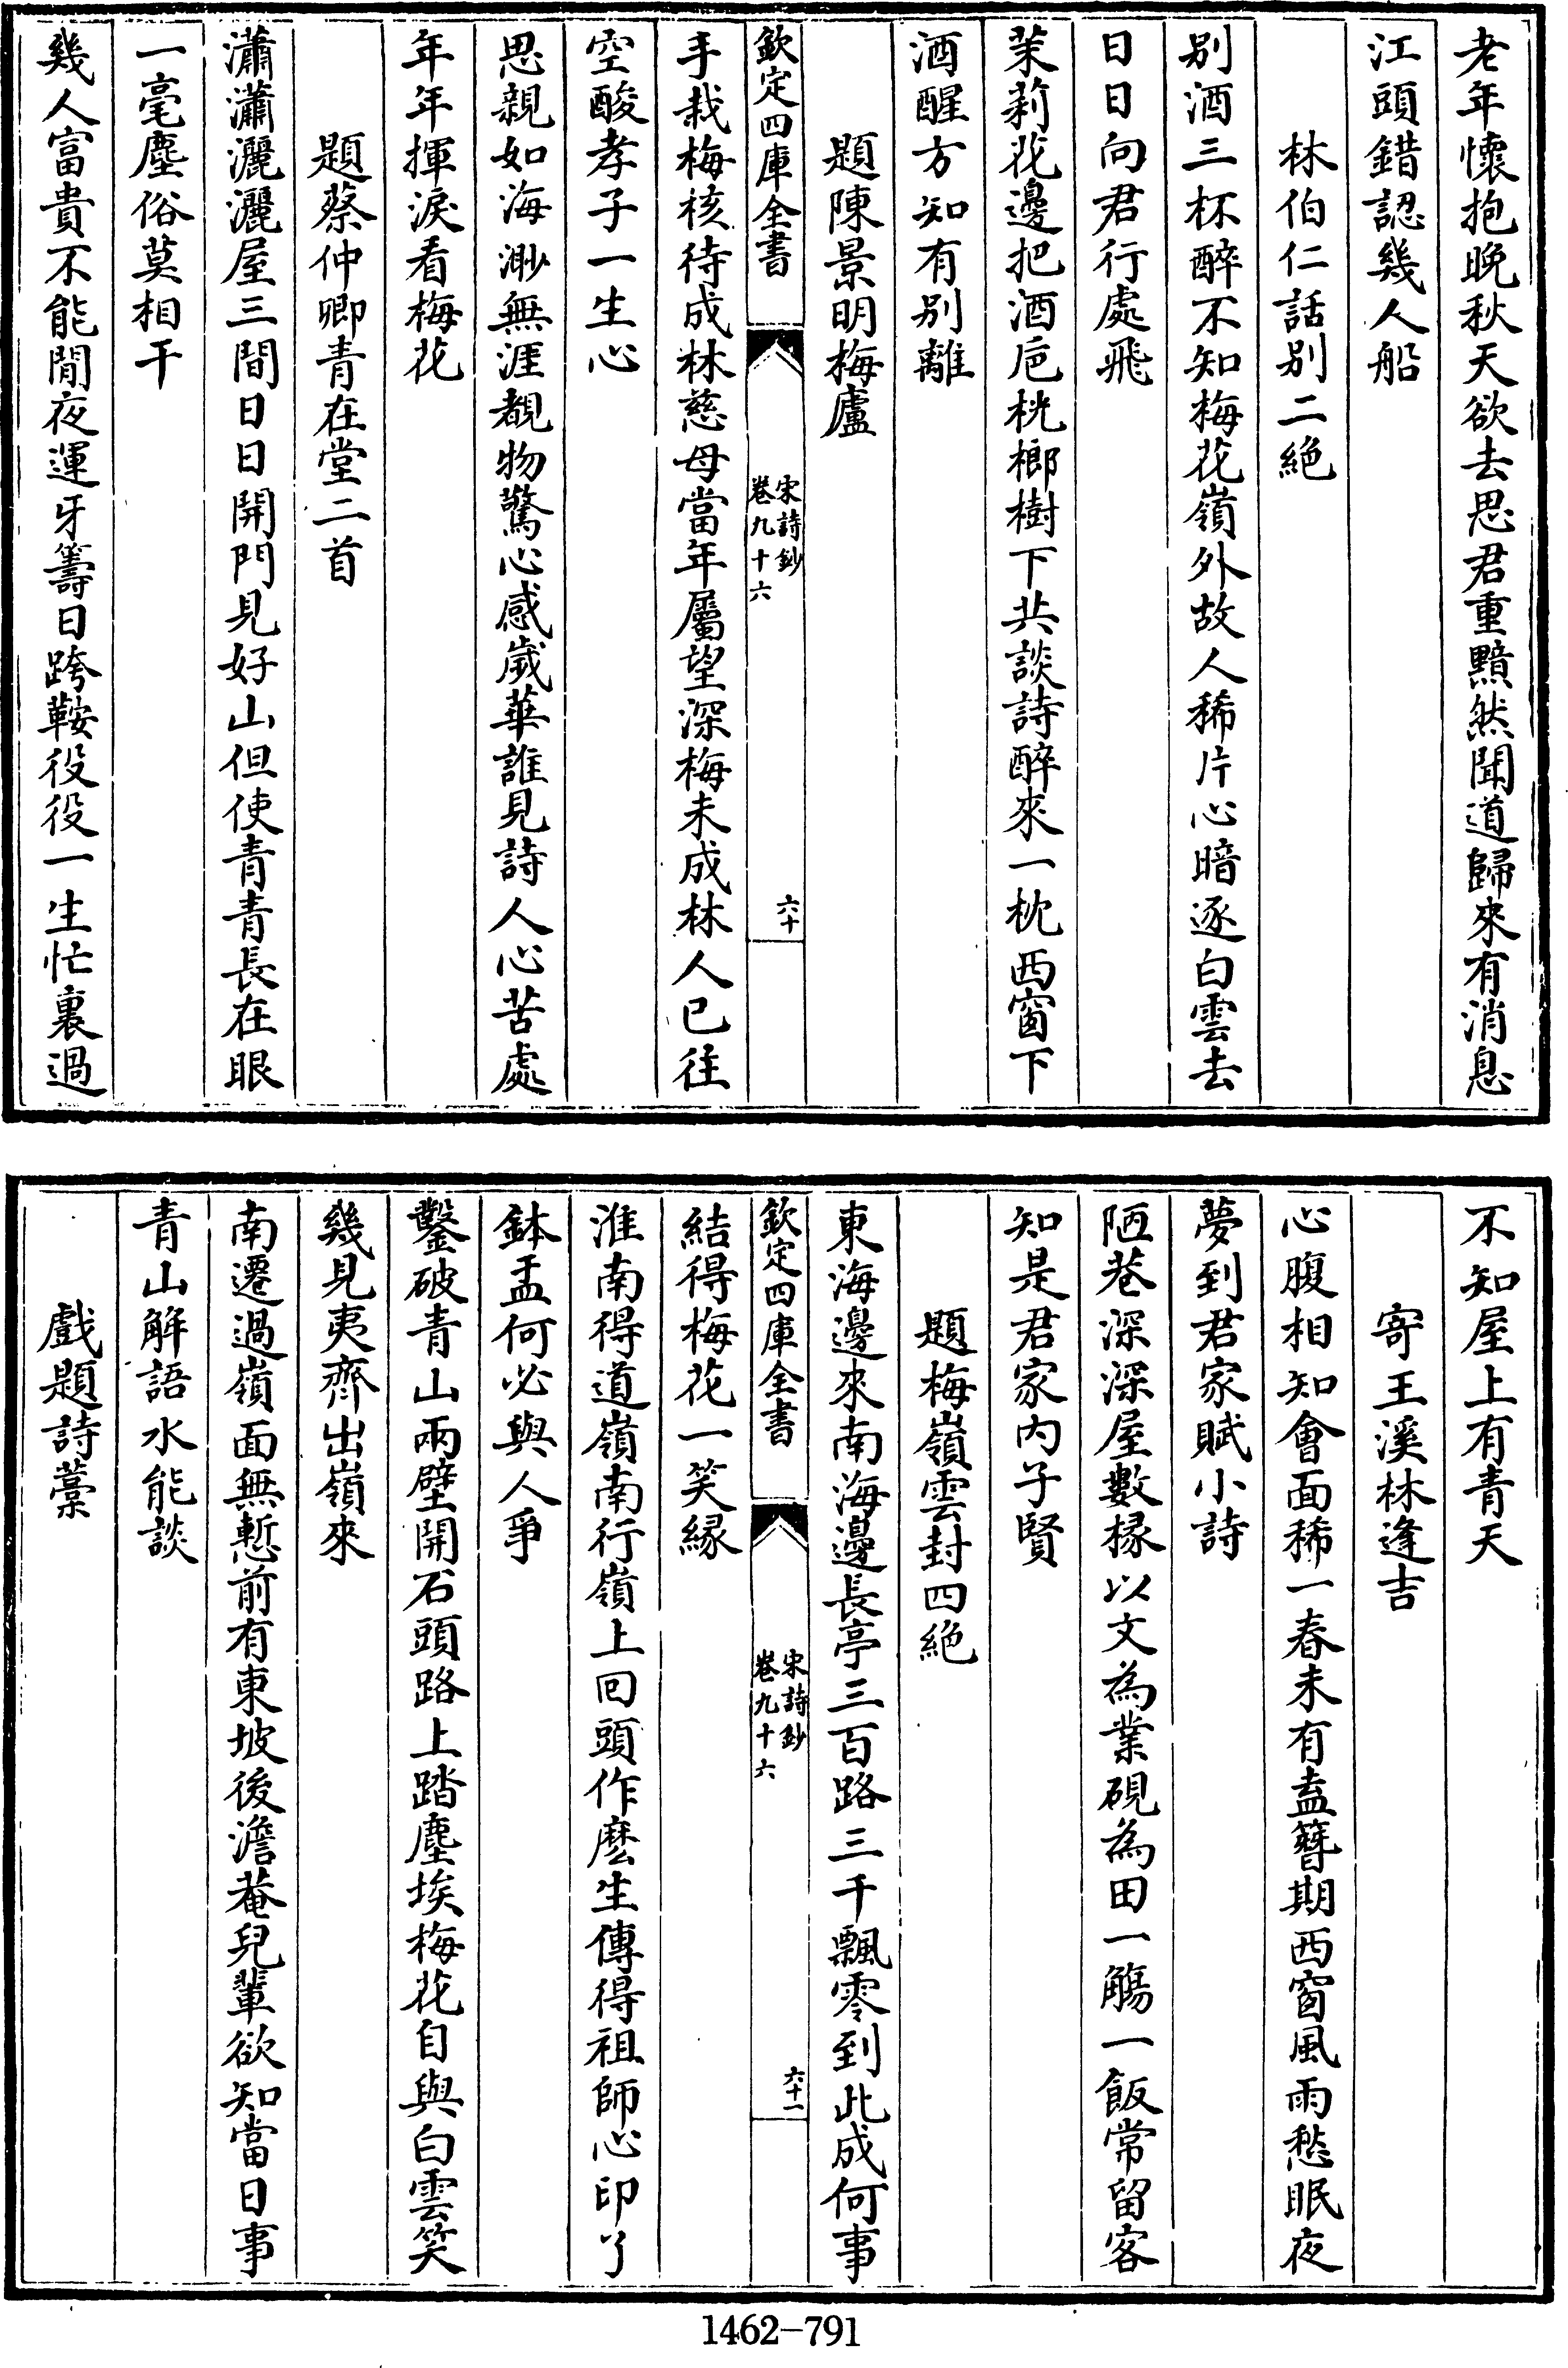 老年懷抱晚秋天欲去思君重黯然聞道歸來有消息
江頭錯認幾人船
林伯仁話别二絶
别酒三杯醉不知梅花嶺外故人稀片心暗逐白雲去
日日向君行處飛
茉莉花邊把酒巵桄榔樹下共談詩醉來一枕西窗下
酒醒方知有别離
題陳景明梅廬
欽定四庫全書
宋詩鈔
卷九十六
六十
手栽梅核待成林慈母當年屬望深梅未成林人已往
空酸孝子一生心
思親如海渺無涯覩物驚心感歲華誰見詩人心苦處
年年揮淚看梅花
題蔡仲卿青在堂二首
瀟瀟灑灑屋三間日日開門見好山但使青青長在眼
一毫塵俗莫相干
幾人富貴不能閒夜運牙籌日跨鞍役役一生忙裏過
不知屋上有青天
寄王溪林逢吉
心腹相知會面稀一春未有盍簪期西窗風雨愁眠夜
夢到君家賦小詩
陋巷深深屋數椽以文為業硯為田一觴一飯常留客
知是君家内子賢
題梅嶺雲封四絶
東海邊來南海邊長亭三百路三千飄零到此成何事
欽定四庫全書
宋詩鈔
卷九十六
六十一
結得梅花一笑縁
淮南得道嶺南行嶺上回頭作麽生傳得祖師心印了
鉢盂何必與人爭
鑿破青山兩壁開石頭路上踏塵埃梅花自與白雲笑
幾見夷齊出嶺來
南遷過嶺面無慙前有東坡後澹菴兒輩欲知當日事
青山解語水能談
戲題詩藁
1462-791